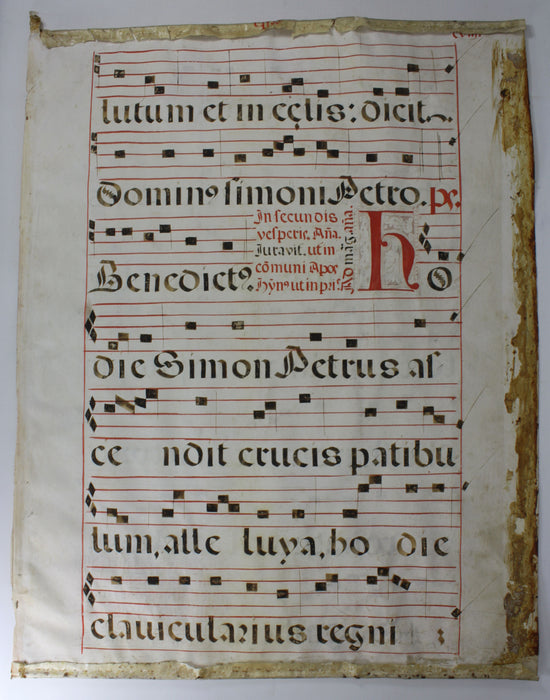 lutum et in cęlis: dicit
Dominꝰ simoni Petro. ps.
In secundis
vesperis. Aña.
Iuravit. ut in
cõmuni Apoˢ
Hỹnꝰ ut in priˢ
Ad mag̃. aña.
Benedictꝰ. HO
die Simon Petrus as
ce ndit crucis patibu
lum, alle luya, ho die
clauicularius regni :